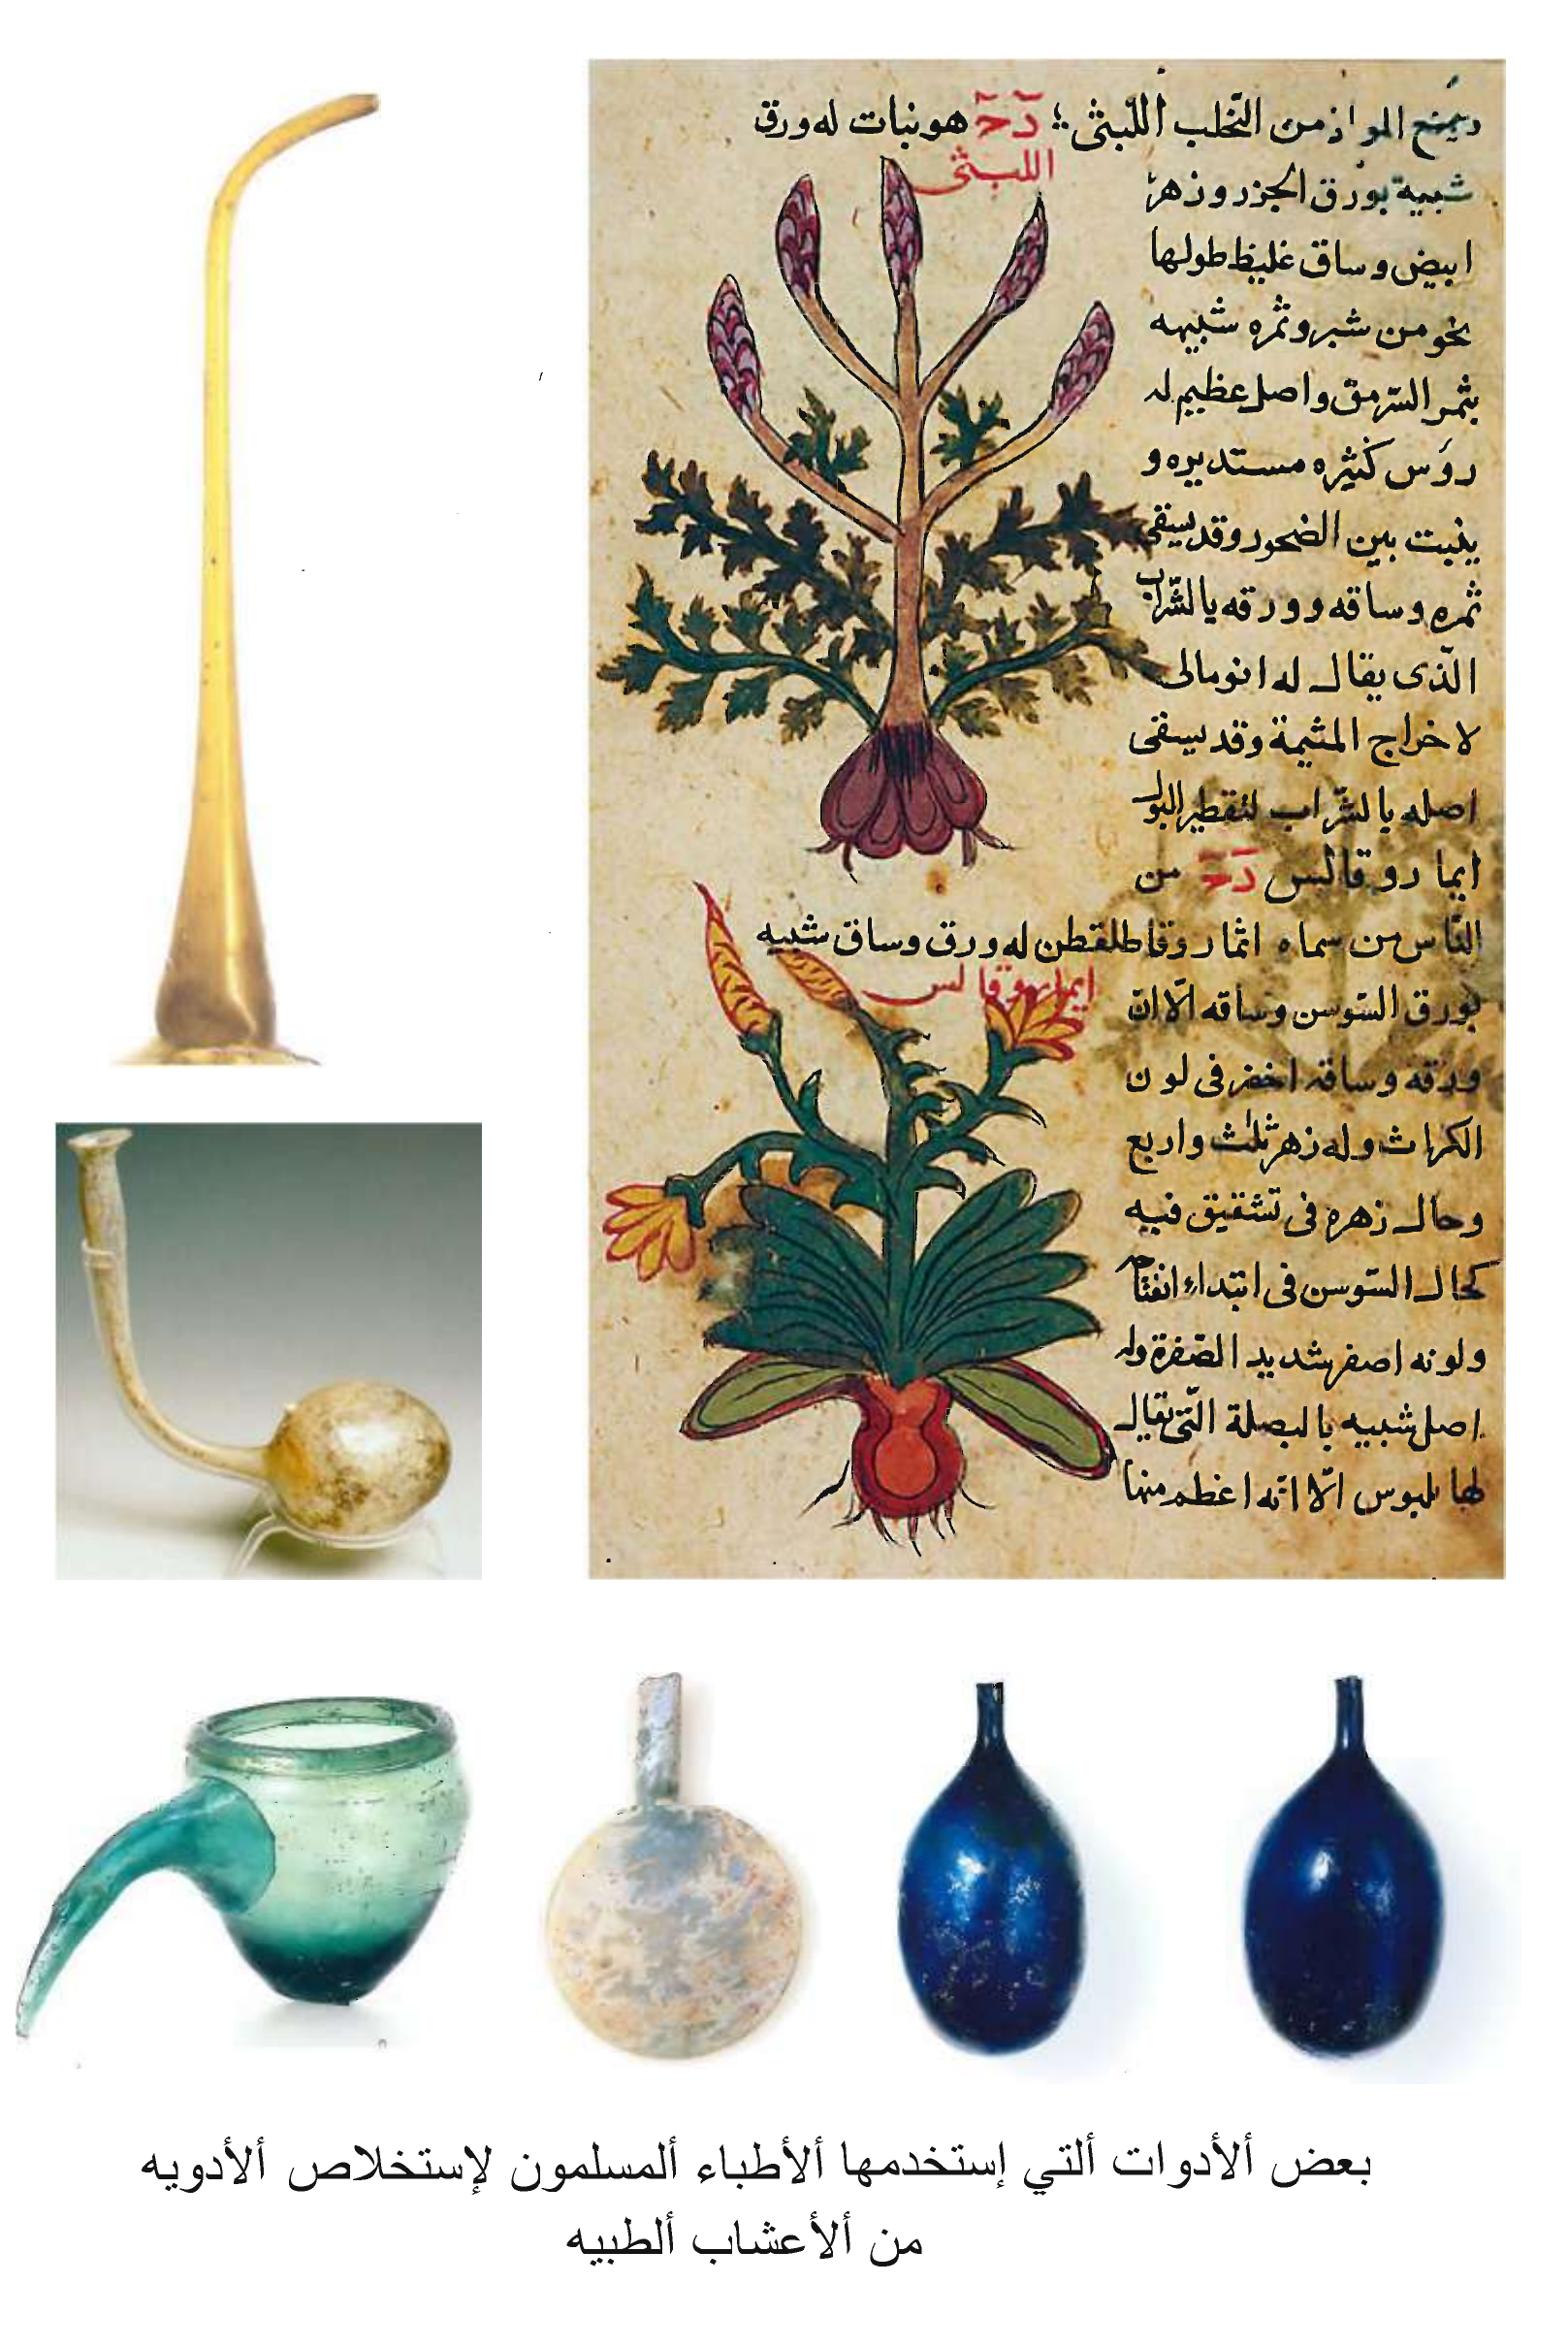 ويمنع المواد من التحلب اللبثى هو نبات له ورق
اللبثى
شبيه بورق الجزر وزهر
ابيض وساق غليظ طولها
نحو من شبر وثمره شبيهه
بثمر السرمق واصل عظيم له
روس كثيره مستديره و
ينبت بين الصخور وقد يسقى
ثمره وساقه وورقه بالشراب
الذى يقال له انومالى
لاخراج المشيمة وقد يسقى
اصله بالشراب لتقطير البول
ايما روقالس من
الناس من سماه روقاطلقطن له ورق وساق شبيه
ايماروقالس
بورق السوسن وساقه الا ان
ورقه وساقه اخضر فى لون
الكراث وله زهر ثلث واربع
وحال زهره فى تشقيق فيه
كحال السوسن فى ابتداء انفتاحه
ولونه اصفر شديد الصفرة وله
اصل شبيه بالبصلة التى يقال
لها بلبوس الا انه اعظم منها
بعض ألأدوات ألتي إستخدمها ألأطباء ألمسلمون لإستخلاص ألأدويه
من ألأعشاب ألطبيه